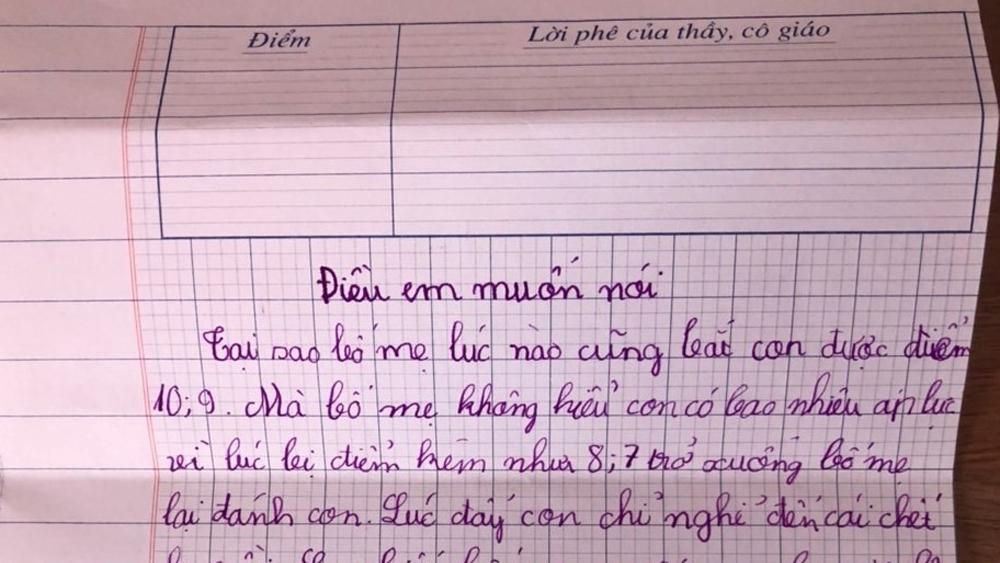 Điểm
Lời phê của thầy, cô giáo
Điều em muốn nói
Tại sao bố mẹ lúc nào cũng bắt con được điểm
10; 9. Mà bố mẹ không hiểu con có bao nhiêu áp lực
vì lúc bị điểm kém như 8; 7 trở xuống bố mẹ
lại đánh con. Lúc đấy con chỉ nghĩ đến cái chết